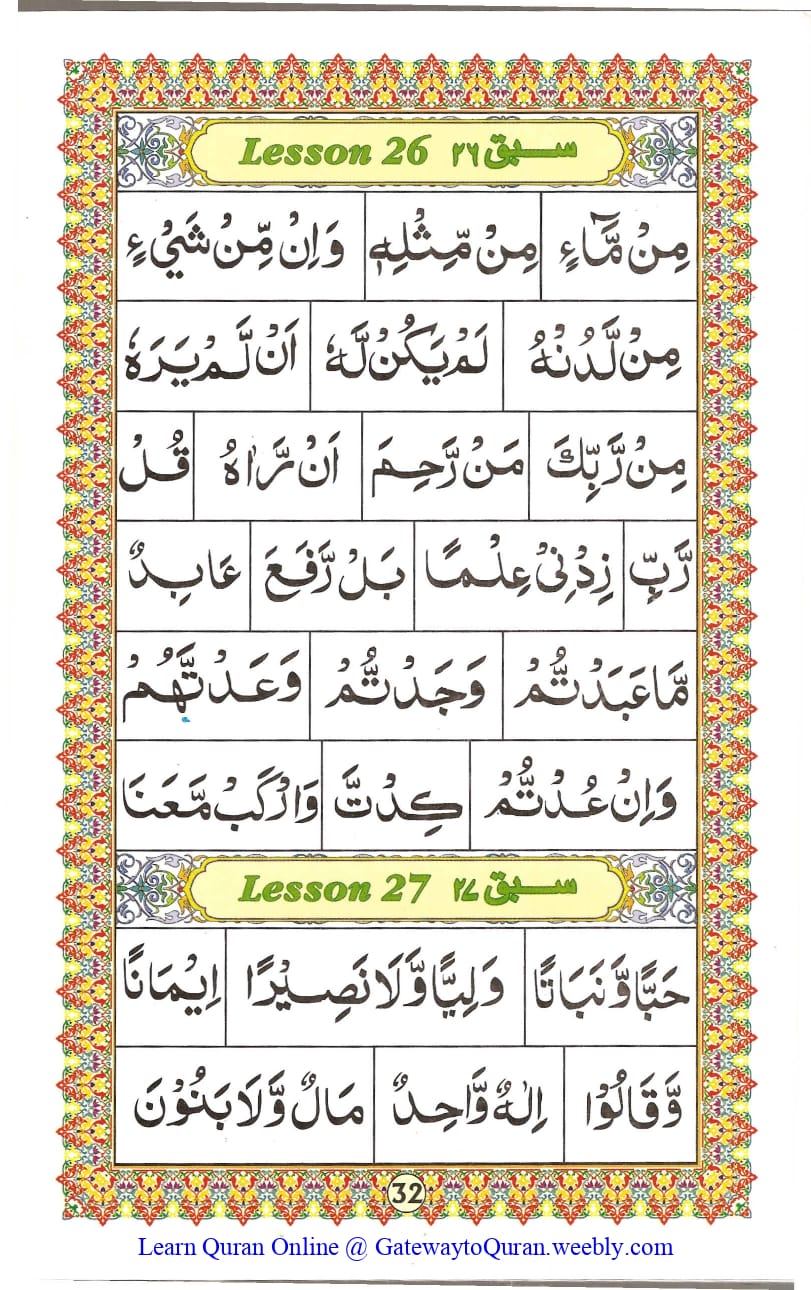 Lesson 26 سبق ۲۶
مِنْ مَّآءٍ مِنْ مِّثْلِهٖ وَاِنْ مِّنْ شَيْءٍ
مِنْ لَّدُنْهُ لَمْ يَكُنْ لَّهٗ اَنْ لَّمْ يَرَهٗ
مِنْ رَّبِّكَ مَنْ رَّحِمَ اَنْ رَّاٰهُ قُلْ
رَّبِّ زِدْنِيْ عِلْمًا بَلْ رَّفَعَ عَابِدٌ
مَّا عَبَدْتُّمْ وَجَدْتُّمْ وَعَدْتَّهُمْ
وَاِنْ عُدْتُّمْ كِدْتَّ وَارْكَبْ مَّعَنَا
Lesson 27 سبق ۲۷
حَبًّا وَّنَبَاتًا وَلِيًّا وَّلَا نَصِيْرًا اِيْمَانًا
وَّقَالُوْا اِلٰهٌ وَّاحِدٌ مَالٌ وَّلَا بَنُوْنَ
32
Learn Quran Online @ GatewaytoQuran.weebly.com